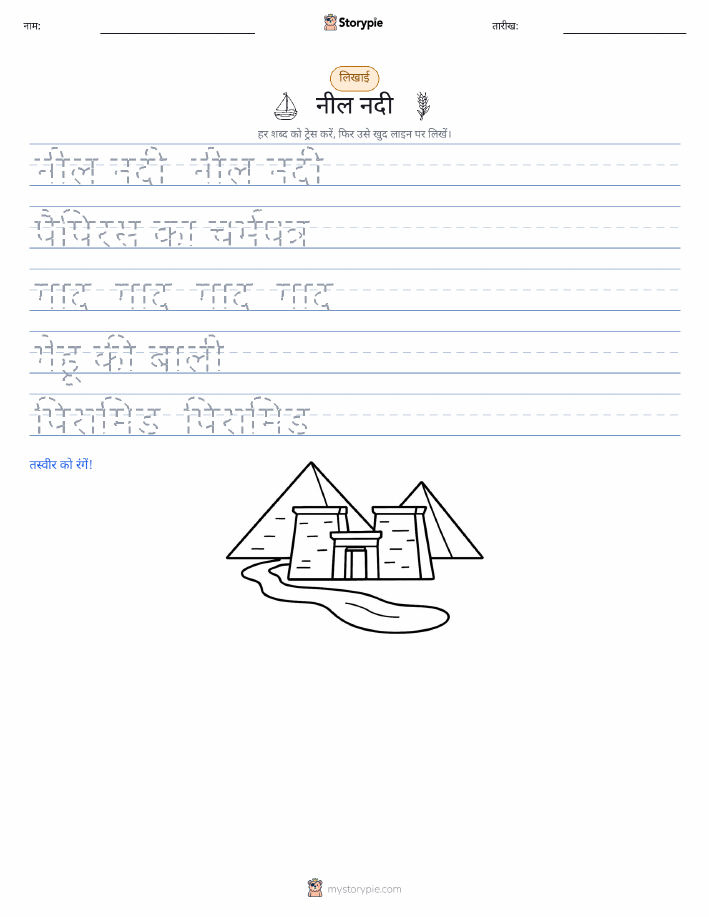 नाम:
Storypie
तारीख:
लिखाई
नील नदी
हर शब्द को ट्रेस करें, फिर उसे खुद लाइन पर लिखें।
नील नदी नील नदी
पैपिरस का चर्मपत्र
गाद गाद गाद गाद
गेहू की बाली
पिरामिड पिरामिड
तस्वीर को रंगें!
mystorypie.com